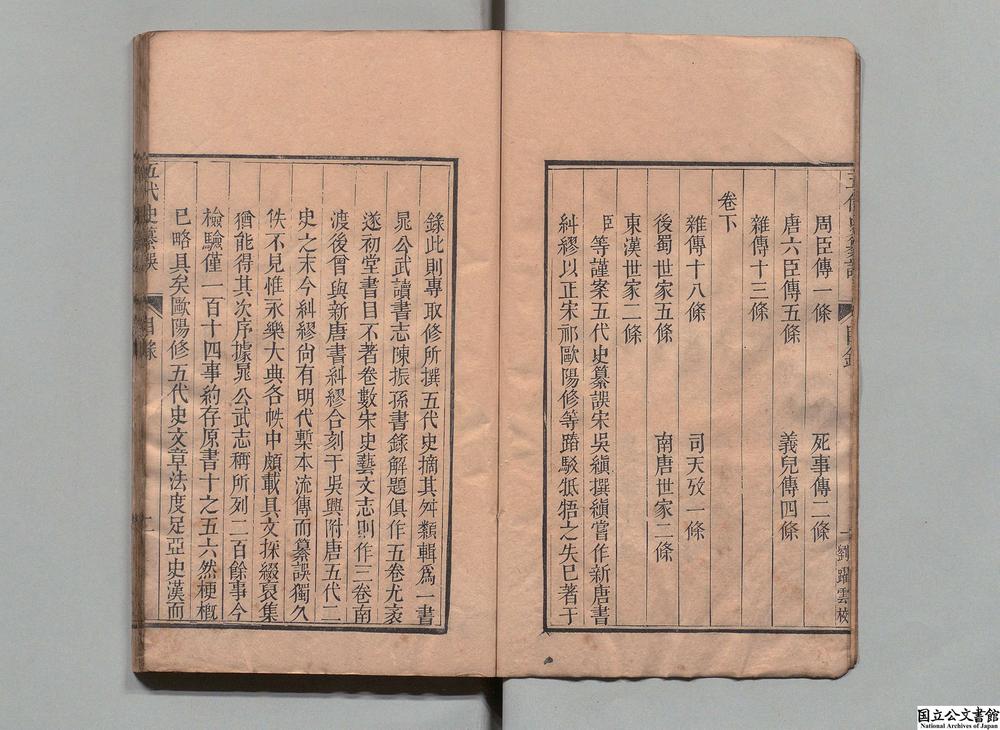 周臣傳一條 死事傳二條
唐六臣傳五條 義兒傳四條
雜傳十三條
卷下
雜傳十八條 司天攷一條
後蜀世家五條 南唐世家二條
東漢世家二條
臣等謹案五代史纂誤宋吳縝撰縝嘗作新唐書
糾繆以正宋祁歐陽修等踳駁牴牾之失已著于
錄此則專取修所撰五代史摘其舛類輯為一書
晁公武讀書志陳振孫書錄解題俱作五卷尤袤
遂初堂書目不著卷數宋史藝文志則作三卷南
渡後曾與新唐書糾繆合刻于吳興附唐五代二
史之末今糾繆尚有明代槧本流傳而纂誤獨久
佚不見惟永樂大典各帙中頗載其文採綴裒集
猶能得其次序據晁公武志稱所列二百餘事今
檢驗僅一百十四事約存原書十之五六然梗概
已略具矣歐陽修五代史文章法度足亞史漢而
五代史纂誤 目錄
劉躍雲校
国立公文書館
National Archives of Japan